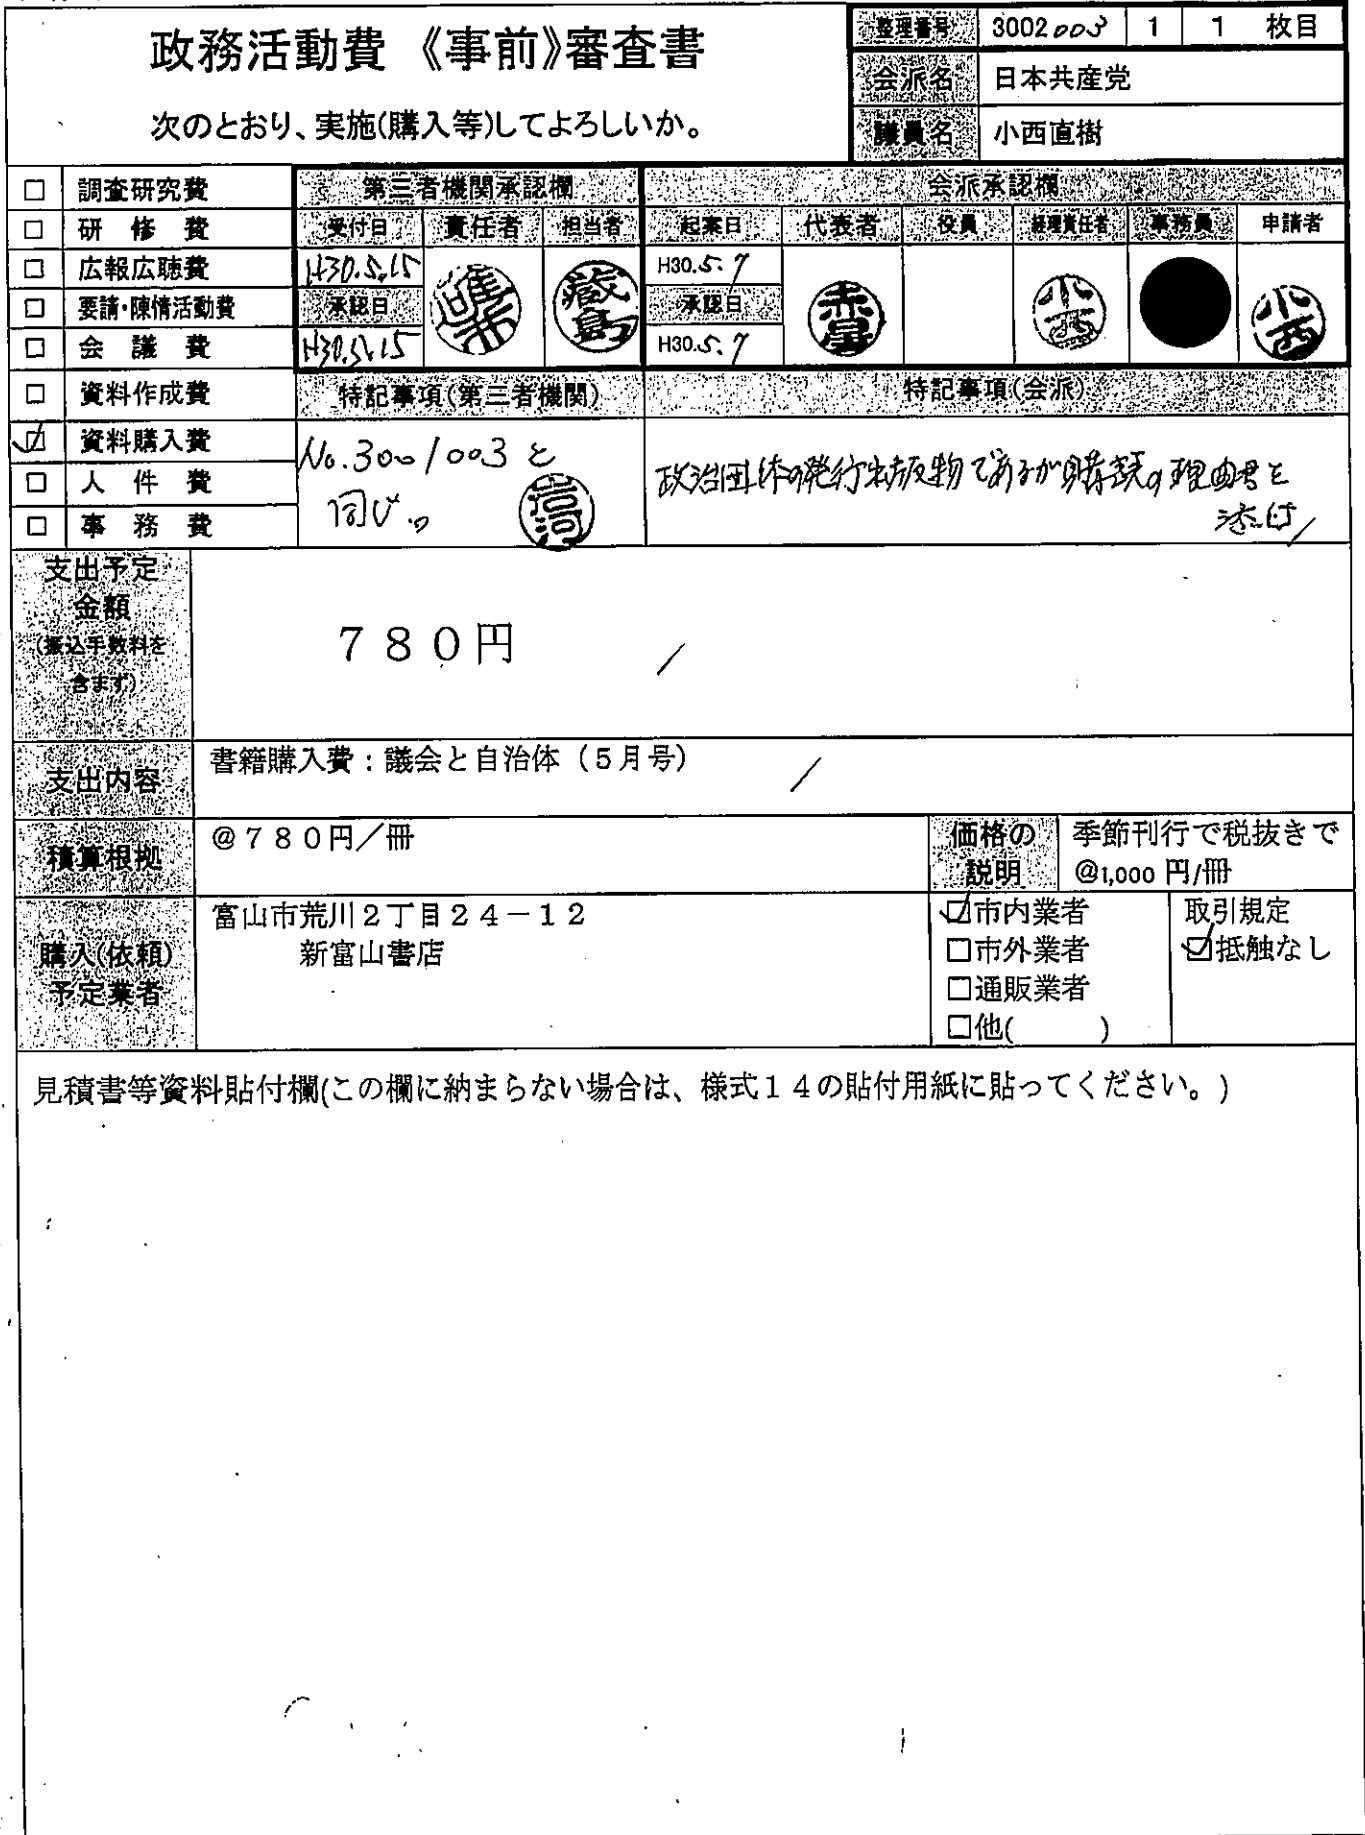 政務活動費 《事前》審査書
次のとおり、実施(購入等)してよろしいか。
整理番号 3002003 1 1 枚目
会派名 日本共産党
議員名 小西直樹
□ 調査研究費
□ 研 修 費
□ 広報広聴費
□ 要請・陳情活動費
□ 会 議 費
□ 資料作成費
☑ 資料購入費
□ 人 件 費
□ 事 務 費
第三者機関承認欄
受付日 責任者 担当者
H30.5.15
承認日
H30.5.15
蔵島
会派承認欄
起案日 代表者 役員 経理責任者 事務員 申請者
H30.5.7
承認日
H30.5.7
赤星 小西 小西
特記事項(第三者機関)
No.3001003と
同じ。
特記事項(会派)
政治団体の発行出版物であるが購読の理由書を
添付
支出予定
金額
(振込手数料を
含まず)
780円
支出内容
書籍購入費:議会と自治体(5月号)
積算根拠
@780円/冊
価格の
説明
季節刊行で税抜きで
@1,000 円/冊
購入(依頼)
予定業者
富山市荒川2丁目24-12
新富山書店
☑市内業者
□市外業者
□通販業者
□他( )
取引規定
☑抵触なし
見積書等資料貼付欄(この欄に納まらない場合は、様式14の貼付用紙に貼ってください。)